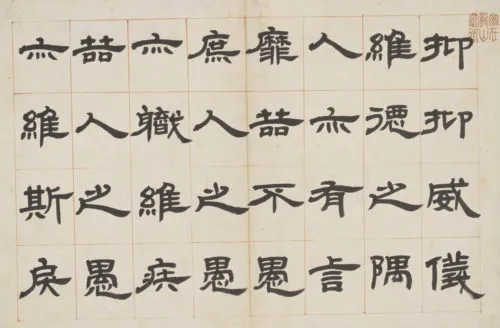 抑抑威儀
維德之隅
人亦有言
靡喆不愚
庶人之愚
亦職維疾
喆人之愚
亦維斯戾